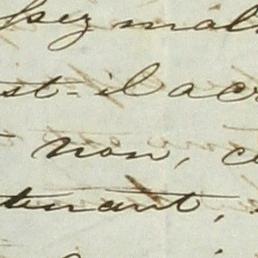 ssez mal
st-il a c
non, c
tenant,